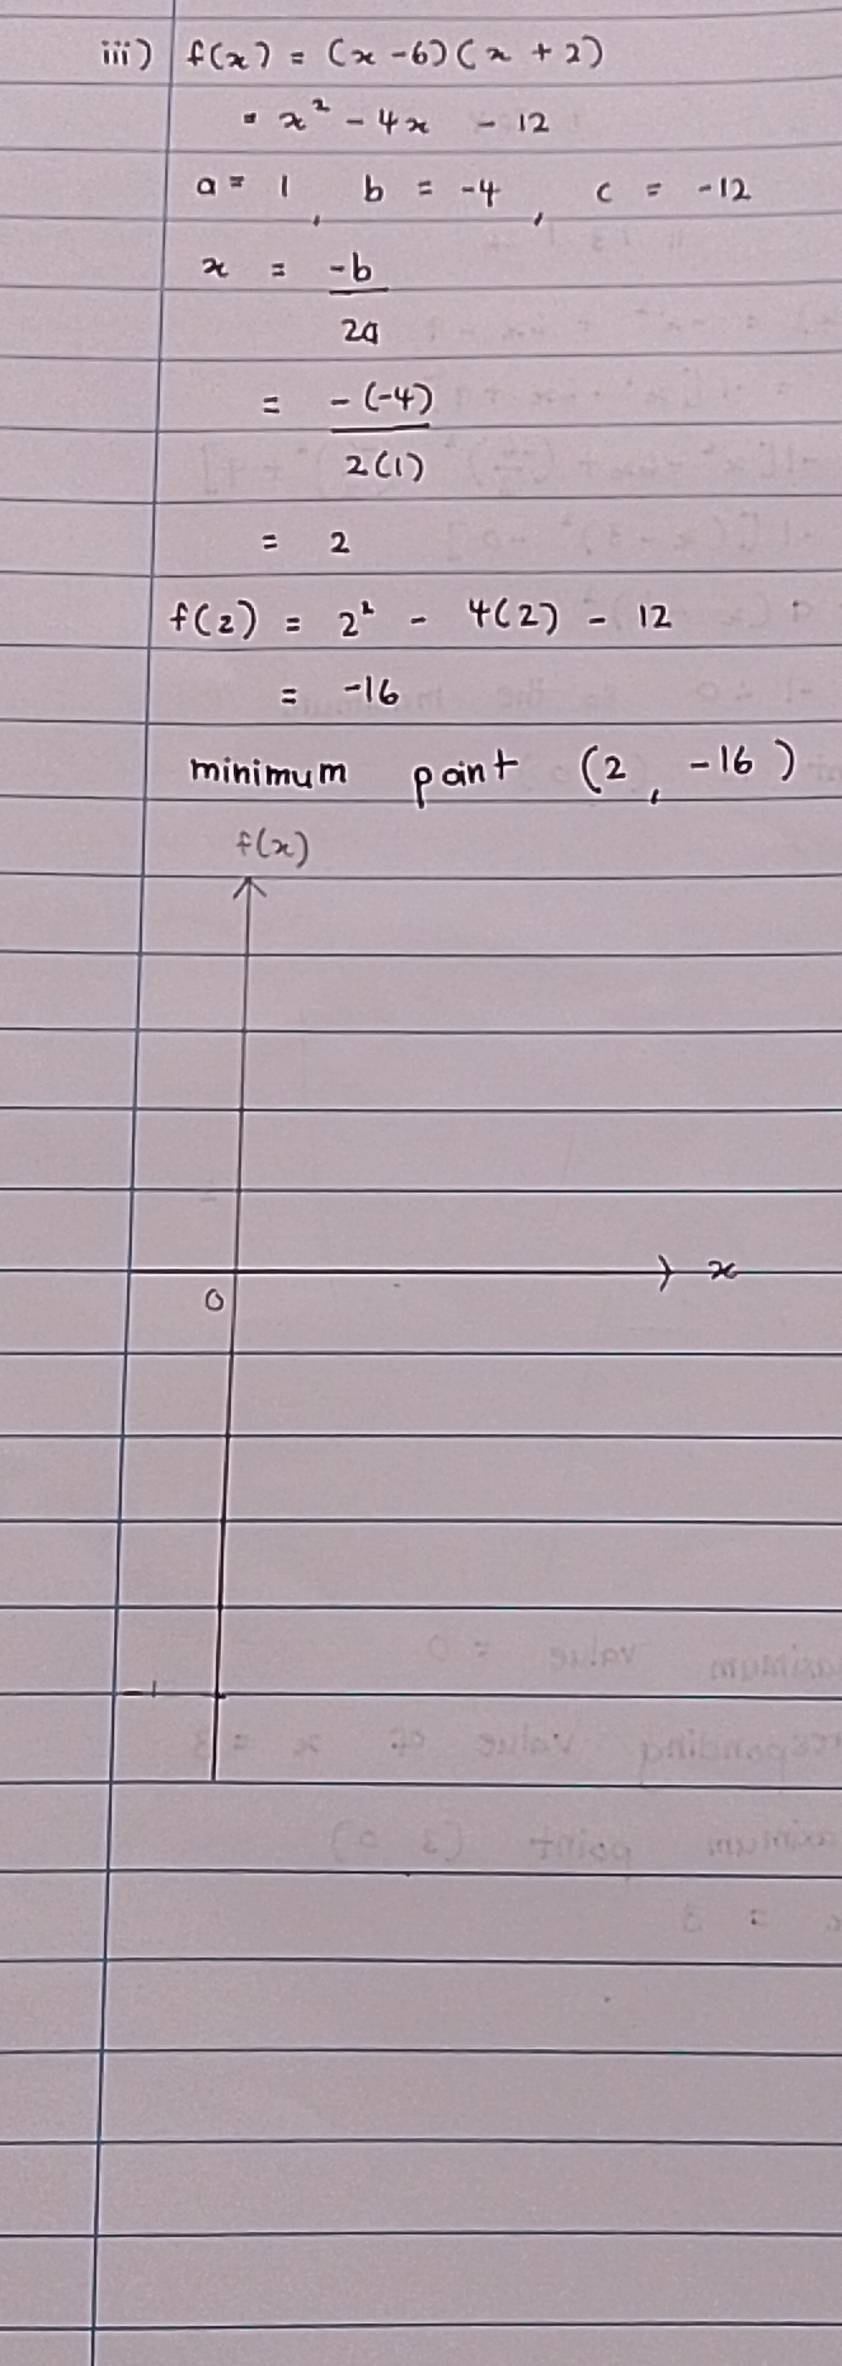 iii) f(x) = (x - 6)(x + 2)
= x² - 4x - 12
a = 1, b = -4, c = -12
x = -b/2a
= -(-4)/2(1)
= 2
f(2) = 2² - 4(2) - 12
= -16
minimum point (2, -16)
f(x)
x
0
-1